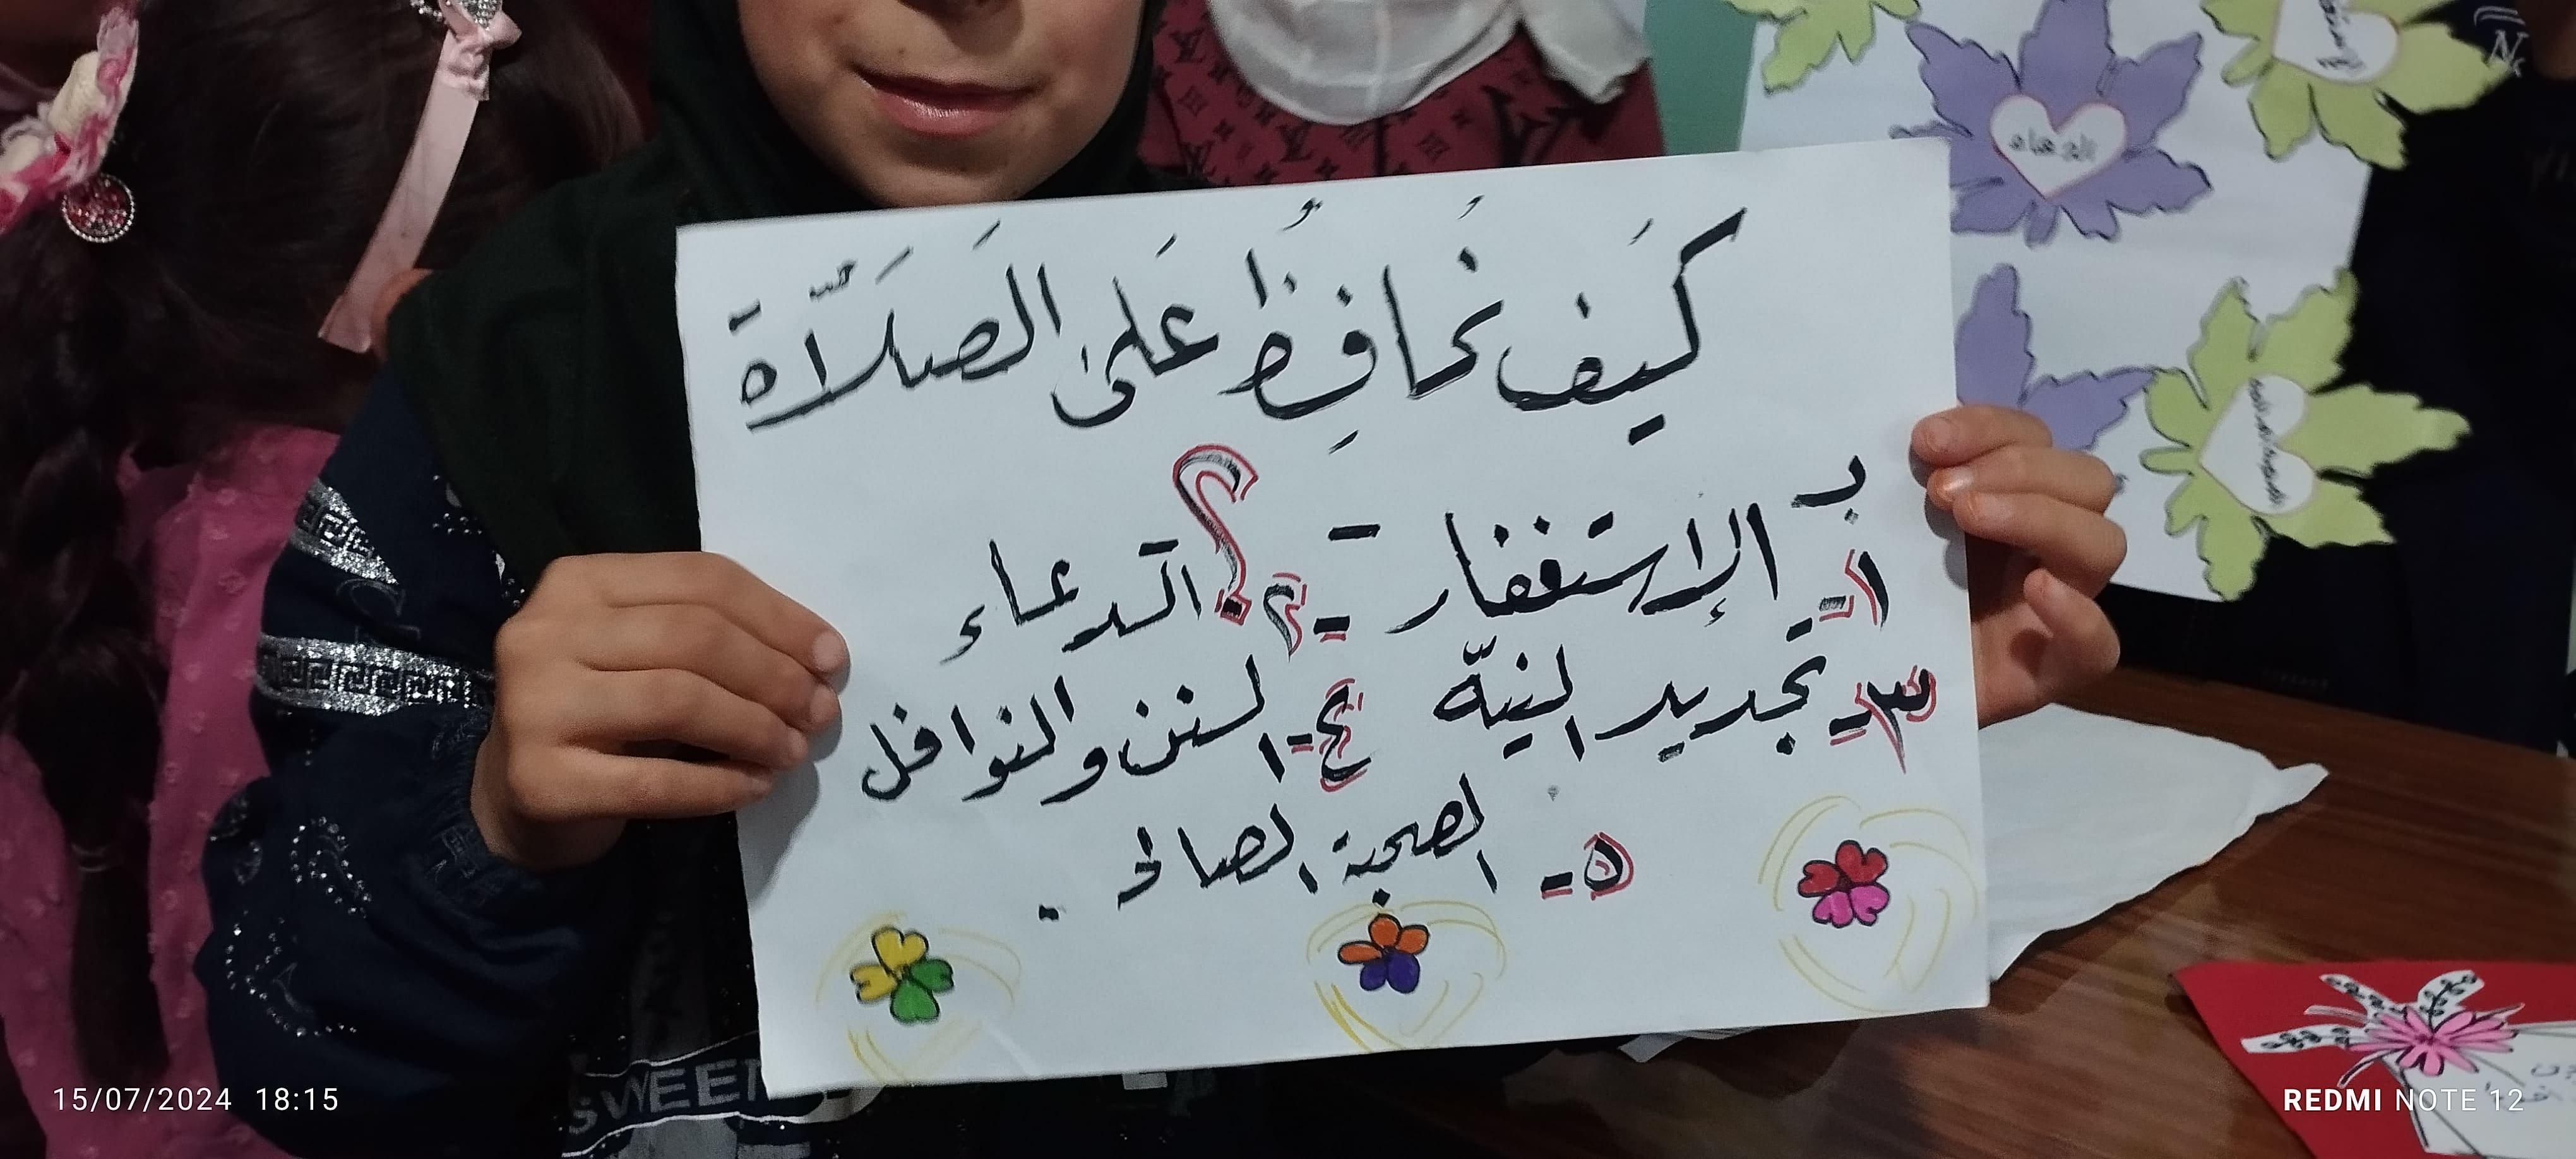 كَيَف نُحافِظُ عَلىٰ الصَلَاّة
بـ
١- الإستغفار - ٢- الدعاء ؟
٣- تجديد النيّة ٤- السنن والنوافل
٥- الصحبة الصالح .
الدعاء
SWEET
15/07/2024 18:15
REDMI NOTE 12